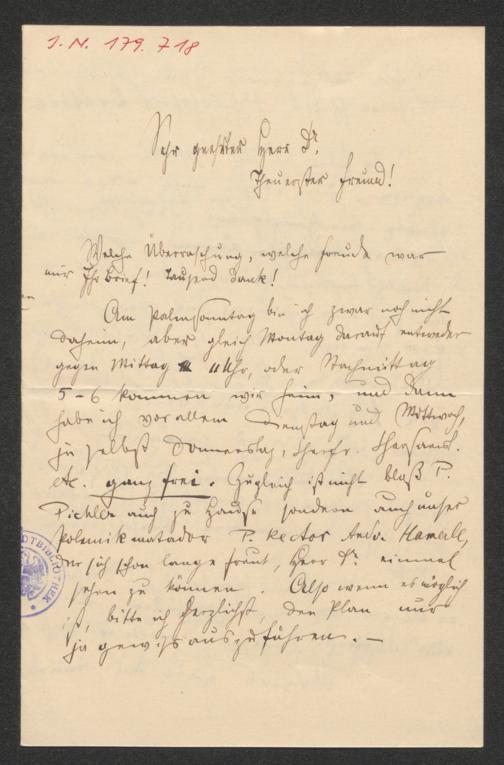 J. N. 179.718
Sehr geehrter Herr Dr.
Theuerster Freund!
Welche Überraschung, welche Freude war
mir Ihr Brief! Tausend Dank!
Am Palmsonntag bin ich zwar noch nicht
daheim, aber gleich Montag darauf entweder
gegen Mittag 11 Uhr, oder Nachmittag
5-6 kommen wir heim, und dann
habe ich vor allem Dienstag und Mittwoch,
ja selbst Donnerstag, Charfr. Charsamst.
etc. ganz frei. Zugleich ist nicht bloß P.
Pichler auch zu Hause sondern auch unser
Polemikmatador P. Rector Andr. Hamerle,
der sich schon lange freut, Herr Dr. einmal
sehen zu können. Also wenn es möglich
ist, bitte ich herzlichst, den Plan nur
ja gewiss auszuführen. —
TBIBLIOTHEK